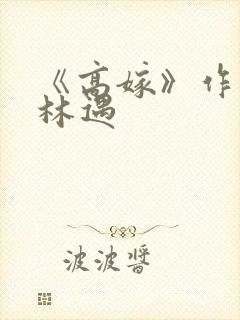 《高嫁》作
林遇
波波醬